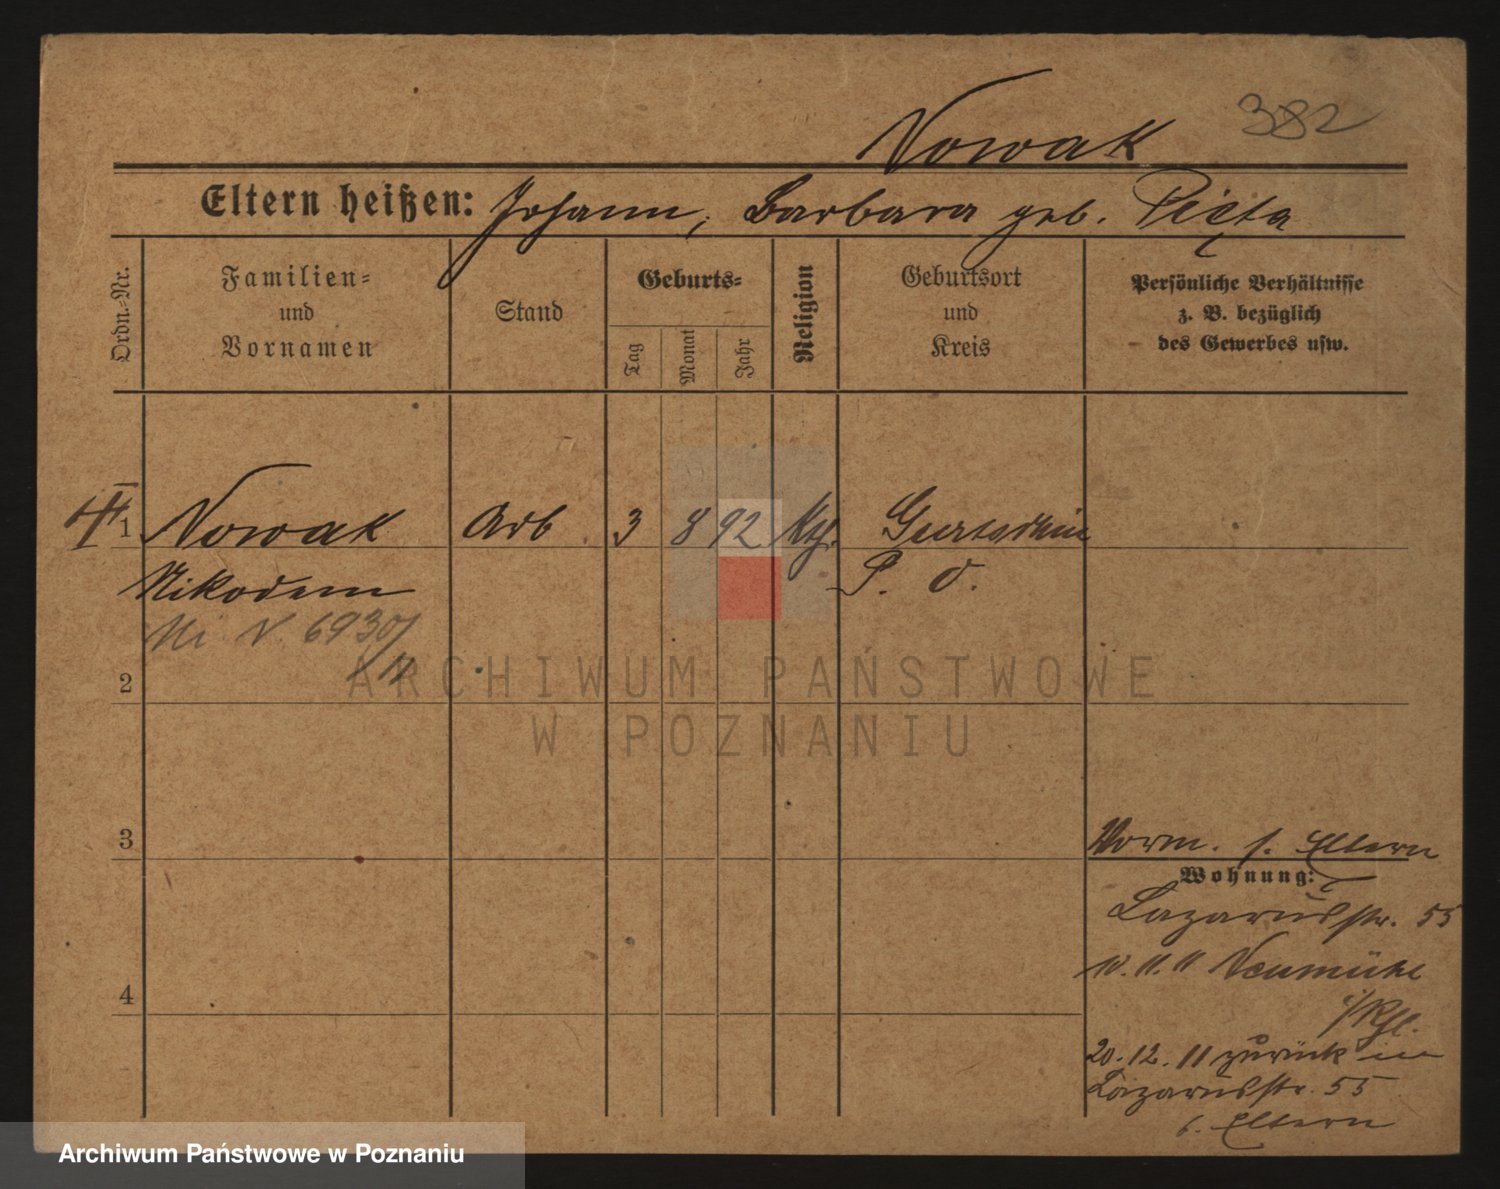 382
Nowak
Eltern heißen: Johann, Barbara geb. Pięta
Ordn.-Nr.
Familien-
und
Vornamen
Stand
Geburts-
Tag
Monat
Jahr
Religion
Geburtsort
und
Kreis
Persönliche Verhältnisse
z. B. bezüglich
des Gewerbes usw.
1 Nowak Arb 3 8 92 Kth.
Nikodem P. O.
Mi N. 6930/
11
2
3
4
ARCHIWUM PAŃSTWOWE
W POZNANIU
Vorm. s. Eltern
Wohnung:
Lazarusstr. 55
10. 11. 11 Neumühl
i/Rhl.
20. 12. 11 zurück in
Lazarusstr. 55
b. Eltern
Archiwum Państwowe w Poznaniu